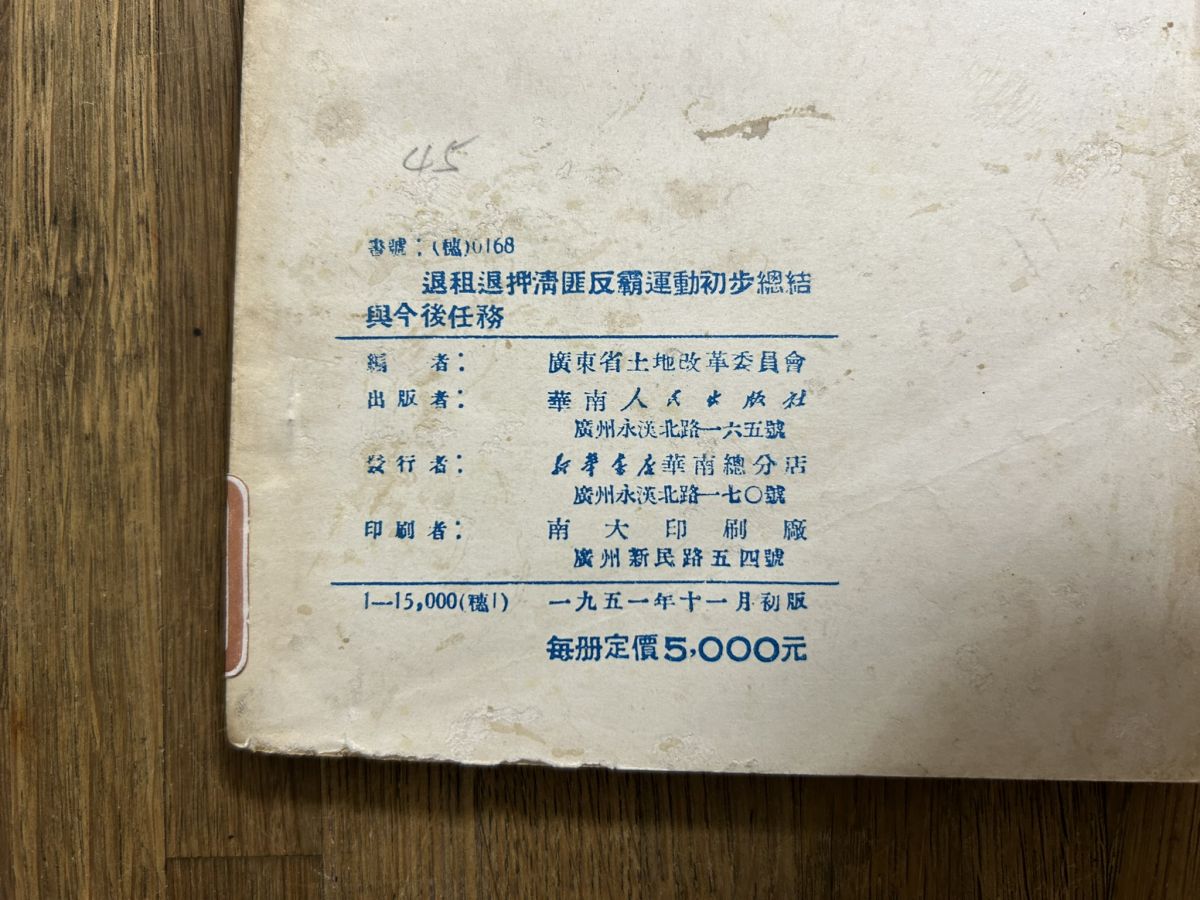 45
書號：(穗)0168
退租退押淸匪反霸運動初步總結
與今後任務
編者：廣東省土地改革委員會
出版者：華南人民出版社
廣州永漢北路一六五號
發行者：新華書店華南總分店
廣州永漢北路一七〇號
印刷者：南大印刷廠
廣州新民路五四號
1—15,000(穗1) 一九五一年十一月初版
每册定價5,000元